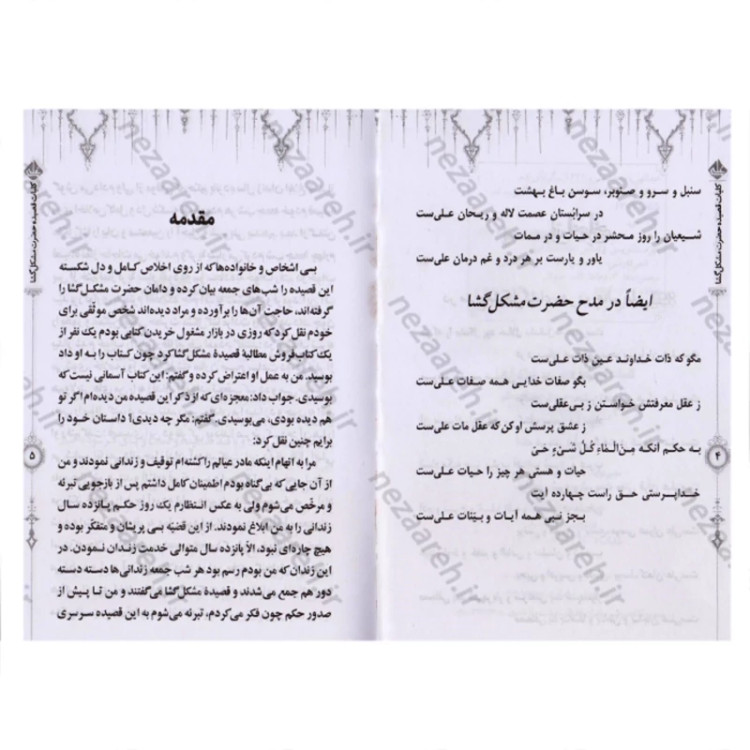 کلیات قصیده حضرت مشکل‌گشا
سنبل و سرو و صنوبر، سوسن باغ بهشت
در سرابُستان عصمت لاله و ریحان علی‌ست
شیعیان را روز محشر در حیات و در ممات
یاور و یارست بر هر درد و غم درمان علی‌ست
ایضاً در مدح حضرت مشکل‌گشا
مگو که ذات خداوند عین ذات علی‌ست
بگو صفات خدایی همه صفات علی‌ست
ز عقل معرفتش خواستن ز بی‌عقلی‌ست
ز عشق پرسش او کن که عقل مات علی‌ست
به حکم آنکه مِنَ المٰاءِ کُلُّ شَیْءٍ حَیّ
حیات و هستی هر چیز را حیات علی‌ست
خداپرستی حق راست چهارده آیت
بجز نبی همه آیات و بیّنات علی‌ست
۴
کلیات قصیده حضرت مشکل‌گشا
مقدمه
بـی اشخاص و خانواده‌ها که از روی اخلاص کامل و دل شکسته
این قصیده را شب‌های جمعه بیان کرده و دامان حضرت مشکل‌گشا را
گرفته‌اند، حاجت آن‌ها را برآورده و مراد دیده‌اند شخص موثّقی برای
خودم نقل کرد که روزی در بازار مشغول خریدن کتابی بودم یک نفر از
یک کتاب‌فروش مطالبهٔ قصیدهٔ مشکل‌گشا کرد چون کتاب را به او داد
بوسید. من به عمل او اعتراض کرده و گفتم: این کتاب آسمانی نیست که
بوسیدی. جواب داد: معجزه‌ای که از ذکر این قصیده من دیده‌ام اگر تو
هم دیده بودی، می‌بوسیدی. گفتم: مگر چه دیدی؟ داستان خود را
برایم چنین نقل کرد:
مرا به اتهام اینکه مادر عیالم را کشته‌ام توقیف و زندانی نمودند و من
از آن جایی که بی‌گناه بودم اطمینان کامل داشتم پس از بازجویی تبرئه
و مرخّص می‌شوم ولی به عکس انتظارم یک روز حکم پانزده سال
زندانی را به من ابلاغ نمودند. از این قضیّه بـی پریشان و متفکّر بوده و
هیچ چاره‌ای نبود، الاّ پانزده سال متوالی خدمت زندان نمودن. در
این زندان که من بودم رسم بود هر شب جمعه زندانی‌ها دسته دسته
دور هم جمع می‌شدند و قصیدهٔ مشکل‌گشا می‌گفتند و من تا پیش از
صدور حکم چون فکر می‌کردم، تبرئه می‌شوم به این قصیده سرسری
۵
nezaareh.ir